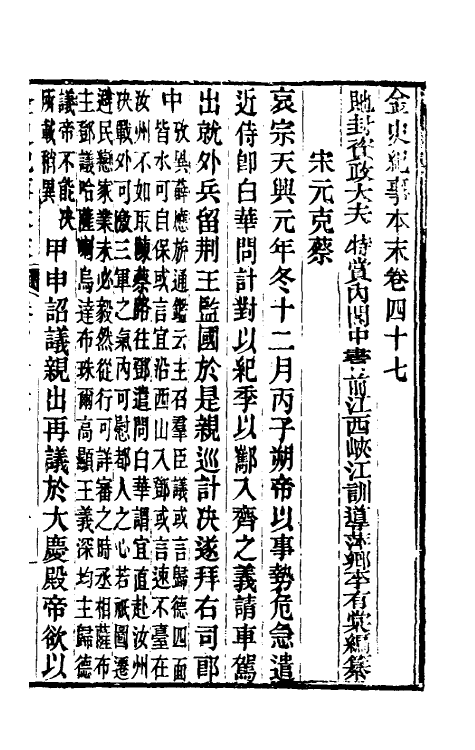 金史紀事本末卷四十七
貤封奉政大夫 特賞內閣中書前江西峽江訓導萍鄉李有棠編纂
宋元克蔡
哀宗天興元年冬十二月丙子朔帝以事勢危急遣
近侍卽白華問計對以紀季以酅入齊之義請車駕
出就外兵留荆王監國於是親巡計决遂拜右司郎
中
攷異薛應旂通鑑云主召羣臣議或言歸德四面
皆水可自保或言宜沿西山入鄧或言速不臺在
汝州不如取陳蔡路往鄧遣問白華謂宜直赴汝州
决戰外可激三軍之氣內可慰都人之心若祇圖遷
避民戀家業未必毅然從行可詳審之時丞相薩布
主鄧議哈薩喇烏達布珠爾高顯王義深均主歸德
議帝不能决
所載稍異
甲申詔議親出再議於大慶殿帝欲以